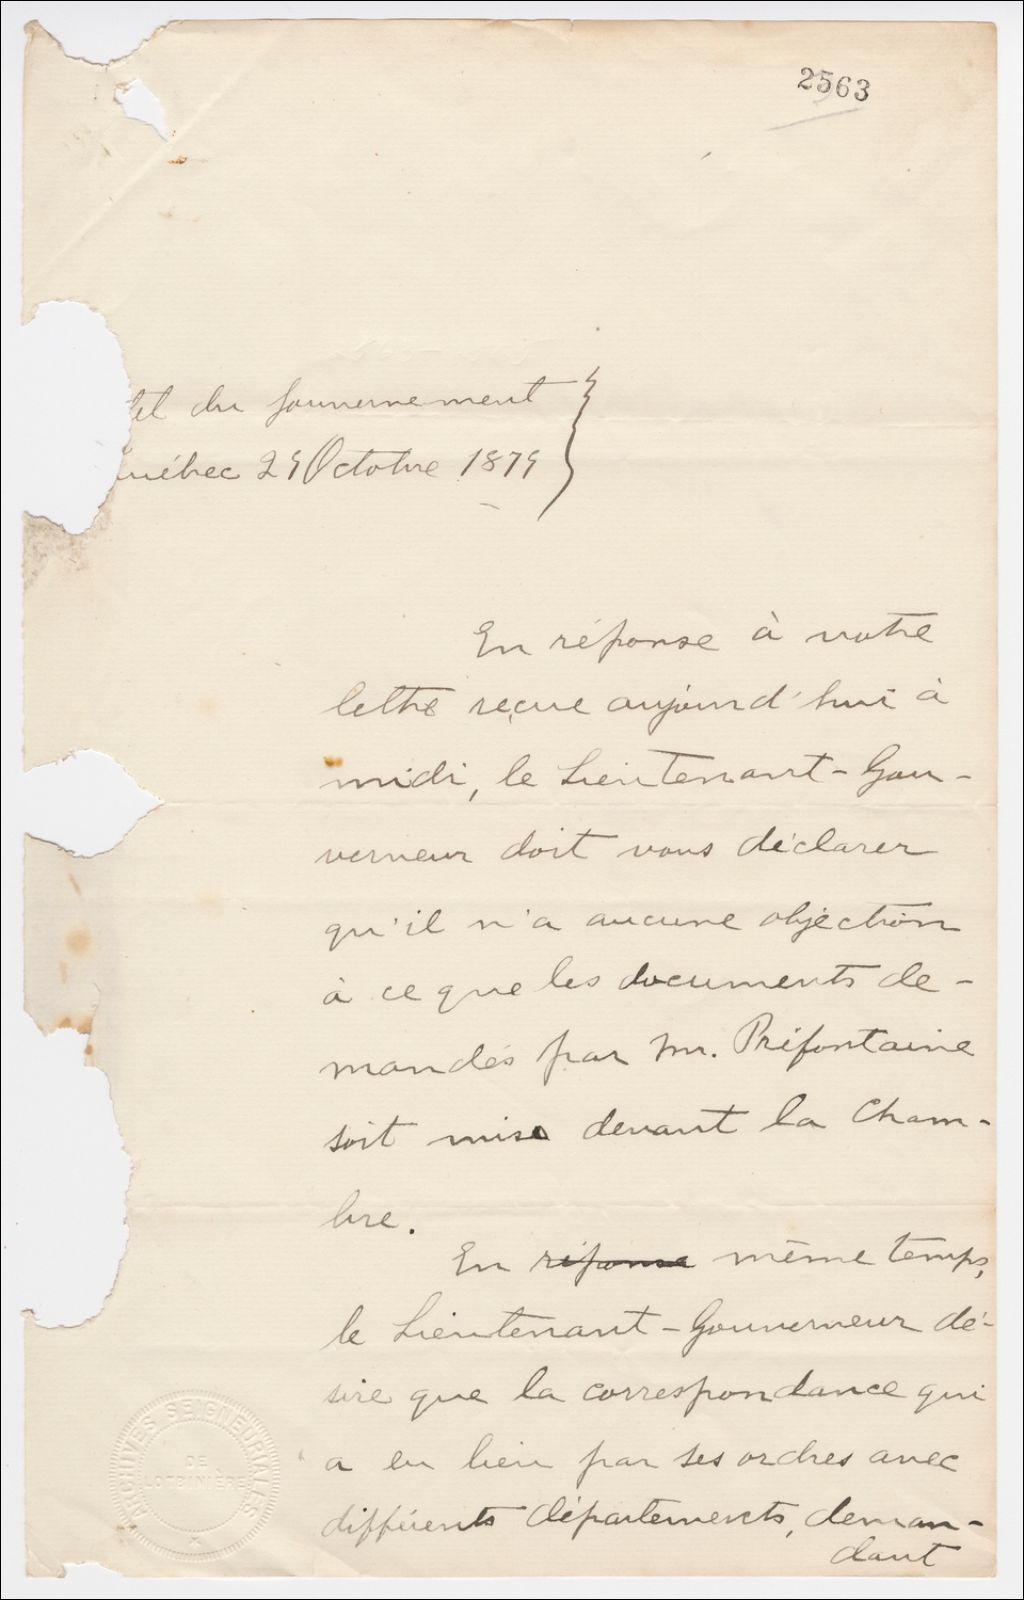 2563
tel du Gouvernement
uébec 29 Octobre 1879
En réponse à votre
lettre reçue aujourd'hui à
midi, le Lieutenant-Gou-
verneur doit vous déclarer
qu'il n'a aucune objection
à ce que les documents de-
mandés par Mr. Préfontaine
soit mise devant la Cham-
bre.
En réponse même temps,
le Lieutenant-Gouverneur dé-
sire que la correspondance qui
a eu lieu par ses ordres avec
différents départements, deman-
dant
ARCHIVES SEIGNEURIALES
DE
LOTBINIÈRE